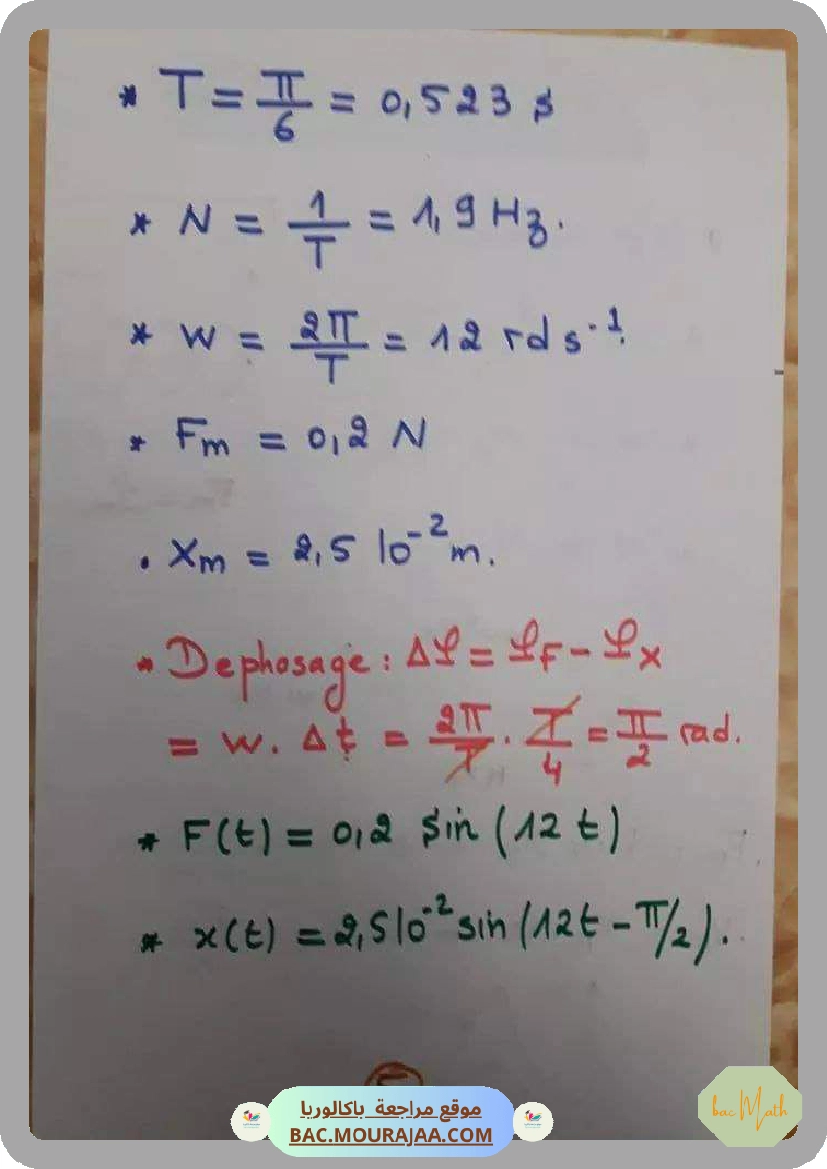 * T = π/6 = 0,523 s
* N = 1/T = 1,9 Hz.
* W = 2π/T = 12 rd s⁻¹.
* Fm = 0,2 N
. Xm = 2,5 10⁻² m.
* Dephosage : Δφ = φF - φx
= W. Δt = 2π/T . T/4 = π/2 rad.
* F(t) = 0,2 sin (12 t)
* x(t) = 2,5 10⁻² sin (12t - π/2).
موقع مراجعة باكالوريا
BAC.MOURAJAA.COM
bac Math